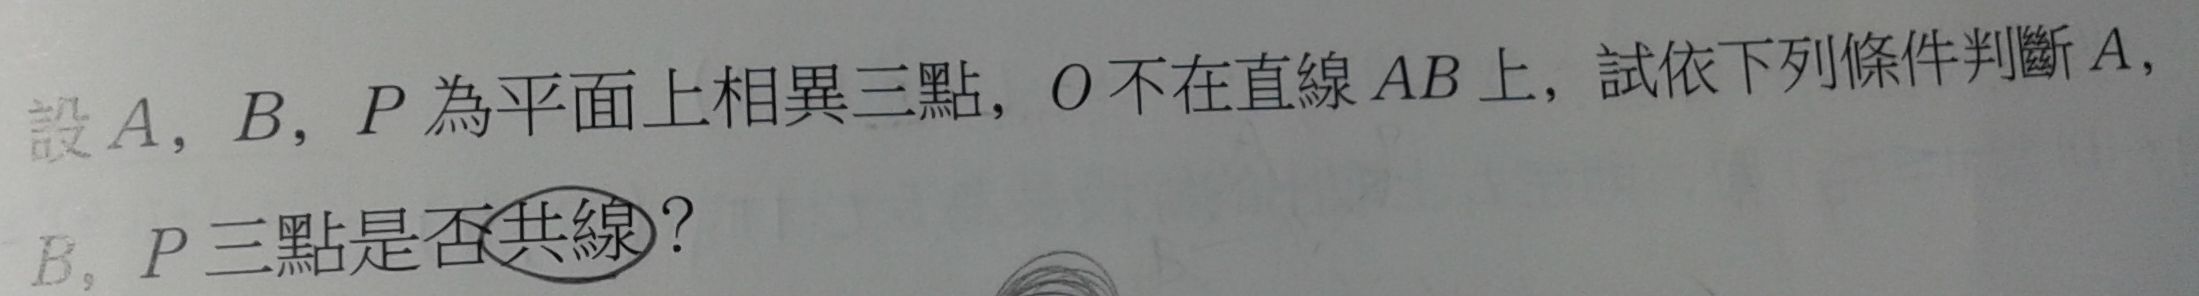 設 A，B，P 為平面上相異三點，O 不在直線 AB 上，試依下列條件判斷 A，
B，P 三點是否共線？